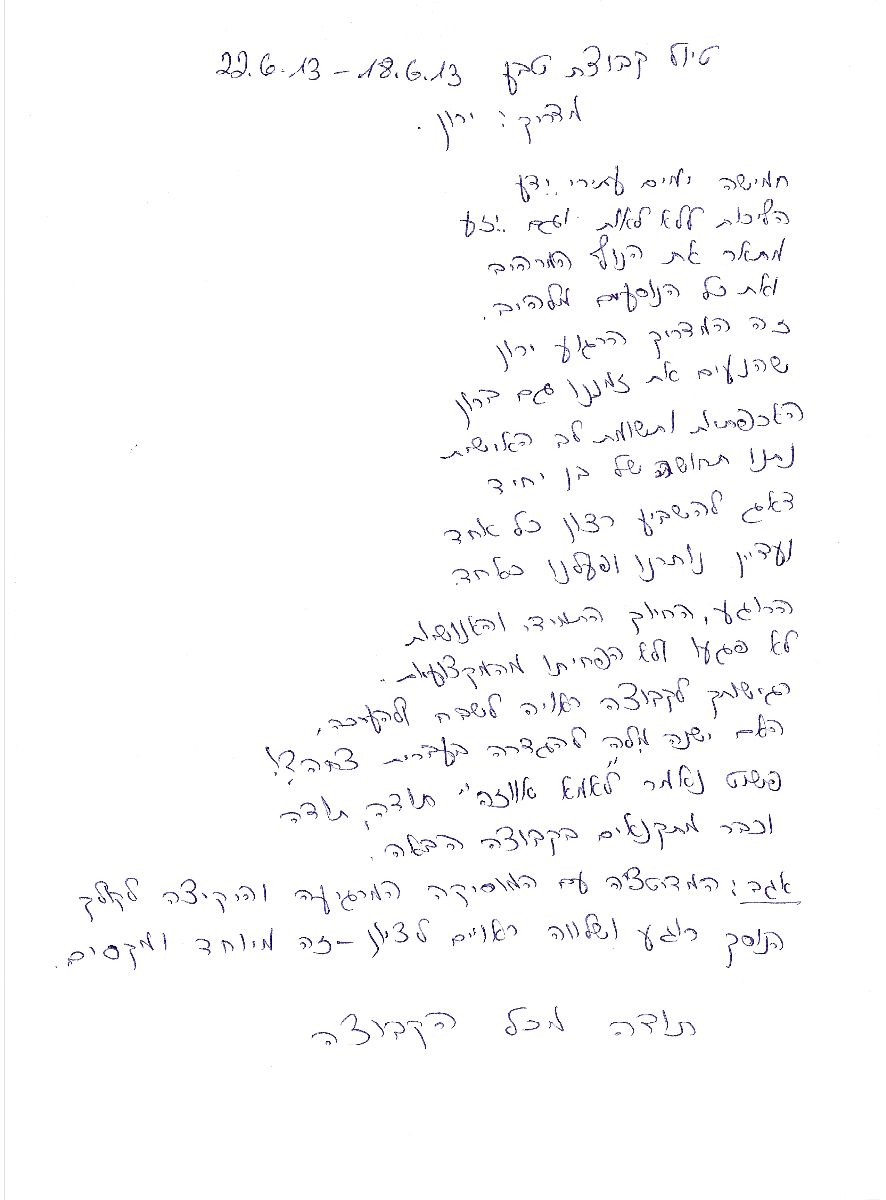 טיול קבוצת טבע 18.6.13 – 22.6.13
מדריך: ירון.
חמישה ימים עתירי ידע
הליכות ללא לאות וגם יזע
מתאר את הנוף המרהיב
ואת כל הנוסעים מלהיב.
זה המדריך הרגוע ירון
שהנעים את זמננו וגם ברון
האכפתיות ותשומת לב האישית
נתנו תחושה של בן יחיד
דאג להשביע רצון כל אחד
ועדיין נותרנו ופעלנו כאחד.
הרוגע, החיוך התמידי, והאנושות
לא פגעו ולא הפחיתו מהמקצועיות.
רגישותך לקבוצה ראויה לשבח ולהערכה,
האם ישנה מלה להגדרה בעברית צחה?!
פשוט נאמר "לאמא אווזה" תודה, תודה
וכבר מתקנאים בקבוצה הבאה.
אגב: המדיטציה עם המוסיקה המרגיעה והיקיצה לקולך
הנוסך רוגע ושלווה ראויים לציון – זה מיוחד ומקסים.
תודה מכל הקבוצה